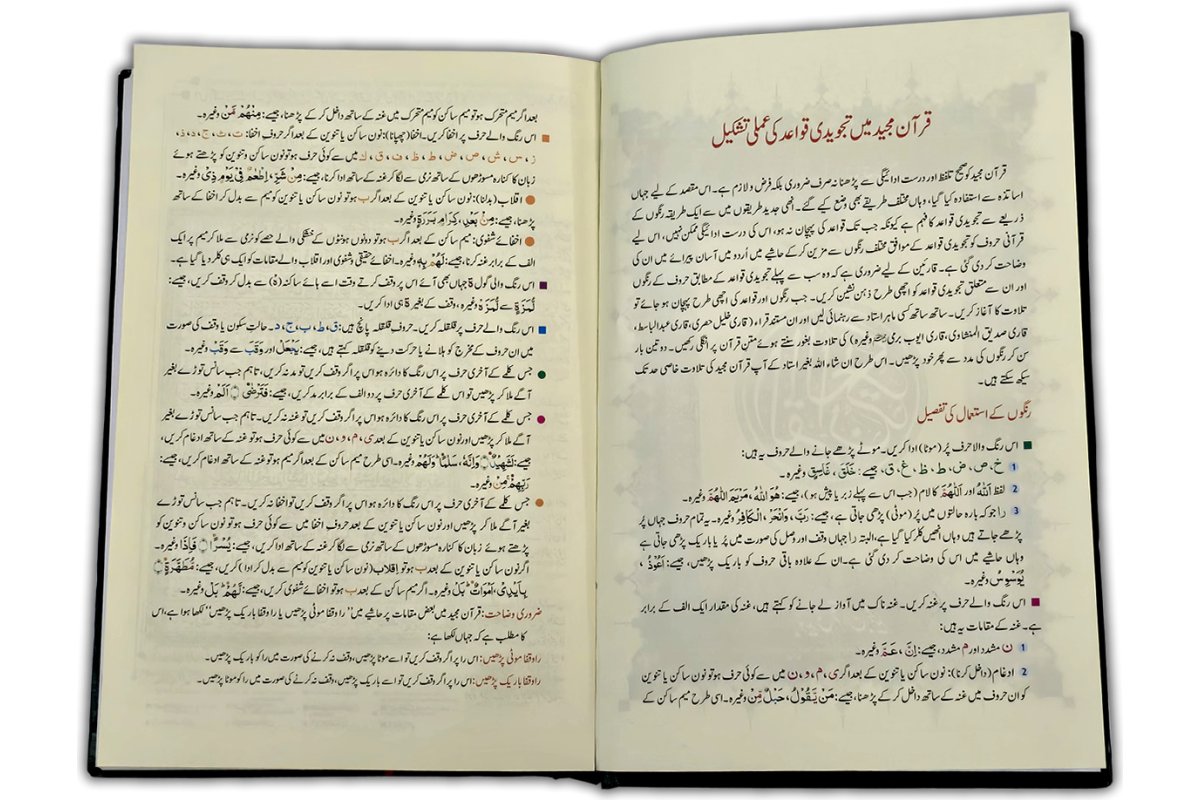 قرآن مجید میں تجویدی قواعد کی عملی تشکیل
قرآن مجید کو صحیح تلفظ اور درست ادائیگی سے پڑھنا نہ صرف ضروری بلکہ فرض و لازم ہے۔ اس مقصد کے لیے جہاں
اساتذہ سے استفادہ کیا گیا، وہاں مختلف طریقے بھی وضع کیے گئے۔ انھی جدید طریقوں میں سے ایک طریقہ رنگوں کے
ذریعے سے تجویدی قواعد کا فہم ہے کیونکہ جب تک قواعد کی پہچان نہ ہو، اس کی درست ادائیگی ممکن نہیں، اس لیے
قرآنی حروف کو تجویدی قواعد کے موافق مختلف رنگوں سے مزین کر کے حاشیے میں اُردو میں آسان پیرائے میں ان کی
وضاحت کر دی گئی ہے۔ قارئین کے لیے ضروری ہے کہ وہ سب سے پہلے تجویدی قواعد کے مطابق حروف کے رنگوں
اور ان سے متعلق تجویدی قواعد کو اچھی طرح ذہن نشین کریں۔ جب رنگوں اور قواعد کی اچھی طرح پہچان ہو جائے تو
تلاوت کا آغاز کریں۔ ساتھ ساتھ کسی ماہر استاد سے رہنمائی لیں اور ان مستند قراء (قاری خلیل حصری، قاری عبدالباسط،
قاری صدیق المنشاوی، قاری ایوب بری وغیرہ) کی تلاوت بغور سنتے ہوئے متن قرآن پر انگلی رکھیں۔ دو تین بار
سن کر رنگوں کی مدد سے پھر خود پڑھیں۔ اس طرح ان شاء اللہ بغیر استاد کے آپ قرآن مجید کی تلاوت خاصی حد تک
سیکھ سکتے ہیں۔
رنگوں کے استعمال کی تفصیل
اس رنگ والا حرف پُر (موٹا) ادا کریں۔ موٹے پڑھے جانے والے حروف یہ ہیں:
1 خ، ص، ض، ط، ظ، غ، ق، جیسے: خَلَقَ، غَاسِقٍ وغیرہ۔
2 لفظ اَللّٰهُ اور اَللّٰهُمَّ کا لام (جب اس سے پہلے زبر یا پیش ہو)، جیسے: هُوَ اللّٰهُ، مَرْيَمَ اللّٰهُمَّ وغیرہ۔
3 را جو کہ بارہ حالتوں میں پُر (موٹی) پڑھی جاتی ہے، جیسے: رَبِّ، وَانْحَرْ، الْكَافِرُ وغیرہ۔ یہ تمام حروف جہاں پُر
پڑھے جاتے ہیں وہاں انھیں کلر کیا گیا ہے، البتہ را جہاں وقف اور وصل کی صورت میں پُر یا باریک پڑھی جاتی ہے
وہاں حاشیے میں اس کی وضاحت کر دی گئی ہے۔ ان کے علاوہ باقی حروف کو باریک پڑھیں، جیسے: اَعُوْذُ،
يُوَسْوِسُ وغیرہ۔
اس رنگ والے حرف پر غنہ کریں۔ غنہ ناک میں آواز لے جانے کو کہتے ہیں، غنہ کی مقدار ایک الف کے برابر
ہے۔ غنہ کے مقامات یہ ہیں:
1 ن مشدد اور م مشدد، جیسے: اِنَّ، عَمَّ وغیرہ۔
2 ادغام (داخل کرنا): نون ساکن یا تنوین کے بعد اگر ی، م، و، ن میں سے کوئی حرف ہو تو نون ساکن یا تنوین
کو ان حروف میں غنہ کے ساتھ داخل کر کے پڑھنا، جیسے: مَنْ يَّقُوْلُ، حَبْلٌ مِّنْ وغیرہ۔ اسی طرح میم ساکن کے
بعد اگر میم متحرک ہو تو میم ساکن کو میم متحرک میں غنہ کے ساتھ داخل کر کے پڑھنا، جیسے: مِنْهُمْ مَّنْ وغیرہ۔
اس رنگ والے حرف پر اخفا کریں۔ اخفا (چھپانا): نون ساکن یا تنوین کے بعد اگر حروف اخفا: ت، ث، ج، د، ذ،
ز، س، ش، ص، ض، ط، ظ، ف، ق، ك میں سے کوئی حرف ہو تو نون ساکن و تنوین کو پڑھتے ہوئے
زبان کا کنارہ مسوڑھوں کے ساتھ نرمی سے لگا کر غنہ کے ساتھ ادا کرنا، جیسے: مِنْ شَرِّ، اِطْعٰمٌ فِيْ يَوْمٍ ذِيْ وغیرہ۔
اقلاب (بدلنا): نون ساکن یا تنوین کے بعد اگر ب ہو تو نون ساکن یا تنوین کو میم سے بدل کر اخفا کے ساتھ
پڑھنا، جیسے: مِنْۢ بَعْدِ، كِرَامٍۭ بَرَرَةٍ وغیرہ۔
اخفائے شفوی: میم ساکن کے بعد اگر ب ہو تو دونوں ہونٹوں کے خشکی والے حصے کو نرمی سے ملا کر میم پر ایک
الف کے برابر غنہ کرنا، جیسے: لَهُمْ بِهٖ وغیرہ۔ اخفائے حقیقی و شفوی اور اقلاب والے مقامات کو ایک ہی کلر دیا گیا ہے۔
اس رنگ والی گول ۃ جہاں بھی آئے اس پر وقف کرتے وقت اسے ہائے ساکنہ (ہْ) سے بدل کر وقف کریں، جیسے:
لُّمَزَةٍ سے لُّمَزَهْ وغیرہ، وقف کے بغیر ۃ ہی ادا کریں۔
اس رنگ والے حرف پر قلقلہ کریں۔ حروفِ قلقلہ پانچ ہیں: ق، ط، ب، ج، د۔ حالتِ سکون یا وقف کی صورت
میں ان حروف کے مخرج کو ہلانے یا حرکت دینے کو قلقلہ کہتے ہیں، جیسے: يَجْعَلْ اور وَقَبَ سے وَقَبْ وغیرہ۔
جس کلمے کے آخری حرف پر اس رنگ کا دائرہ ہو اس پر اگر وقف کریں تو مد نہ کریں، تاہم جب سانس توڑے بغیر
آگے ملا کر پڑھیں تو اس کلمے کے آخری حرف پر دو الف کے برابر مد کریں، جیسے: فَتَرْضٰى ۝ اَلَمْ وغیرہ۔
جس کلمے کے آخری حرف پر اس رنگ کا دائرہ ہو اس پر اگر وقف کریں تو غنہ نہ کریں۔ تاہم جب سانس توڑے بغیر
آگے ملا کر پڑھیں اور نون ساکن یا تنوین کے بعد ی، م، و، ن میں سے کوئی حرف ہو تو غنہ کے ساتھ ادغام کریں،
جیسے: لَشَهِيْدٌ ۝ وَاِنَّهٗ، سَلٰمًا وَلَهُمْ وغیرہ۔ اسی طرح میم ساکن کے بعد اگر میم ہو تو غنہ کے ساتھ ادغام کریں، جیسے:
رَبِّهِمْ مِّنْ وغیرہ۔
جس کلمے کے آخری حرف پر اس رنگ کا دائرہ ہو اس پر اگر وقف کریں تو اخفا نہ کریں۔ تاہم جب سانس توڑے
بغیر آگے ملا کر پڑھیں اور نون ساکن یا تنوین کے بعد حروف اخفا میں سے کوئی حرف ہو تو نون ساکن و تنوین کو
پڑھتے ہوئے زبان کا کنارہ مسوڑھوں کے ساتھ نرمی سے لگا کر غنہ کے ساتھ ادا کریں، جیسے: يُسْرًا ۝ فَاِذَا وغیرہ۔
اگر نون ساکن یا تنوین کے بعد ب ہو تو اقلاب (نون ساکن یا تنوین کو میم سے بدل کر ادا) کریں، جیسے: مُّطَهَّرَةٍ ۝
بِاَيْدِيْ، اَمْوَاتٌ بَلْ وغیرہ۔ اگر میم ساکن کے بعد ب ہو تو اخفائے شفوی کریں، جیسے: لَهُمْ بَلْ وغیرہ۔
ضروری وضاحت: قرآن مجید میں بعض مقامات پر حاشیے میں "را وقفا موٹی پڑھیں یا را وقفا باریک پڑھیں" لکھا ہوا ہے، اس
کا مطلب ہے کہ جہاں لکھا ہے:
را وقفا موٹی پڑھیں: اس را پر اگر وقف کریں تو اسے موٹا پڑھیں، وقف نہ کرنے کی صورت میں را کو باریک پڑھیں۔
را وقفا باریک پڑھیں: اس را پر اگر وقف کریں تو اسے باریک پڑھیں، وقف نہ کرنے کی صورت میں را کو موٹا پڑھیں۔